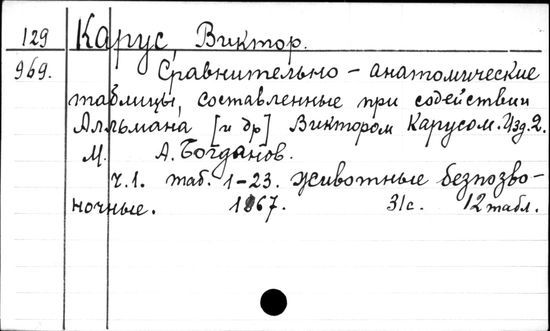 129 Карус, Виктор.
969. Сравнительно-анатомические
таблицы, составленные при содействии
Алльмана [и др] Виктором Карусом. Изд. 2.
М. А. Богданов.
Ч.1. таб. 1-23. Животные безпозво-
ночные. 1867. 31с. 12 табл.